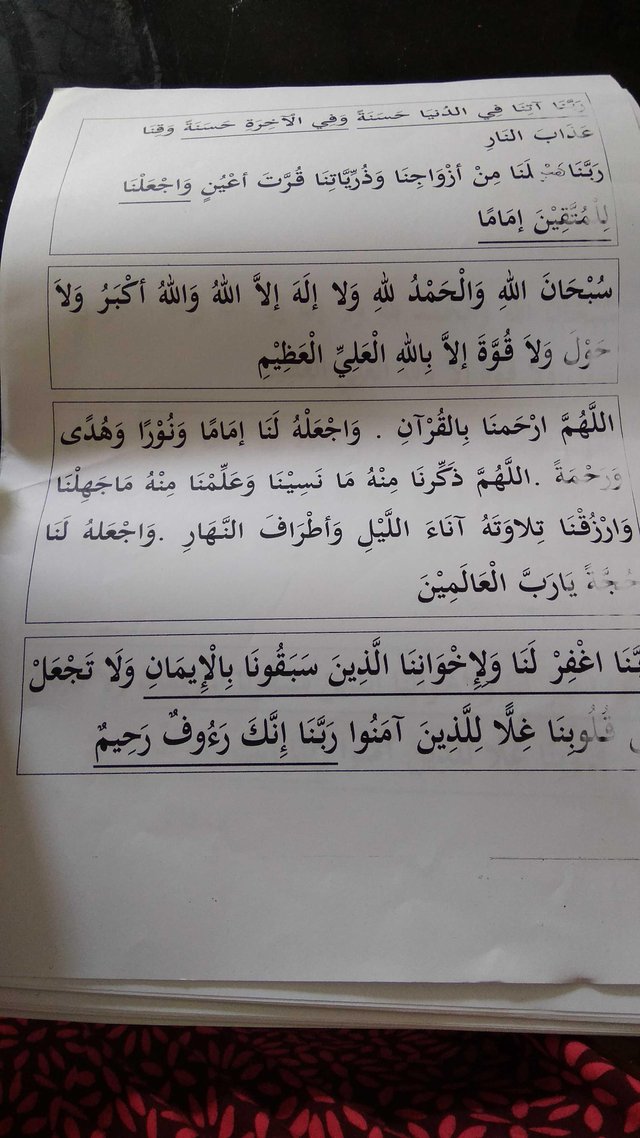 رَبَّنَا آتِنَا فِي الدُنيَا حَسَنَةً وَفِي الْآخِرَةِ حَسَنَةً وَقِنَا
عَذَابَ النَارِ
رَبَّنَا هَبْ لَنَا مِنْ أزْوَاجِنَا وَذُرِّيَّاتِنَا قُرَّتَ أعْيُنٍ وَاجْعَلْنَا
لِلْمُتَّقِيْنَ إمَامًا
سُبْحَانَ اللهِ وَالْحَمْدُ للهِ وَلا إلَهَ إلاَّ اللهُ وَاللهُ أكْبَرُ وَلاَ
حَوْلَ وَلاَ قُوَّةَ إلاَّ بِاللهِ الْعَلِيِّ الْعَظِيْمِ
اللَّهُمَّ ارْحَمنَا بِالقُرْآنِ . وَاجْعَلْهُ لَنَا إمَامًا وَنُوْرًا وَهُدًى
وَرَحْمَةً .اللَّهُمَّ ذَكِّرنَا مِنْهُ مَا نَسِيْنَا وَعَلِّمْنَا مِنْهُ مَاجَهِلْنَا
وَارْزُقْنَا تِلاوَتَهُ آنَاءَ اللَّيْلِ وَأطْرَافَ النَّهَارِ .وَاجْعَلهُ لَنَا
حُجَّةً يَارَبَّ الْعَالَمِيْنَ
رَبَّنَا اغْفِرْ لَنَا وَلِإِخْوَانِنَا الَّذِينَ سَبَقُونَا بِالْإِيمَانِ وَلَا تَجْعَلْ
قُلُوبِنَا غِلًّا لِلَّذِينَ آمَنُوا رَبَّنَا إِنَّكَ رَءُوفٌ رَحِيمٌ